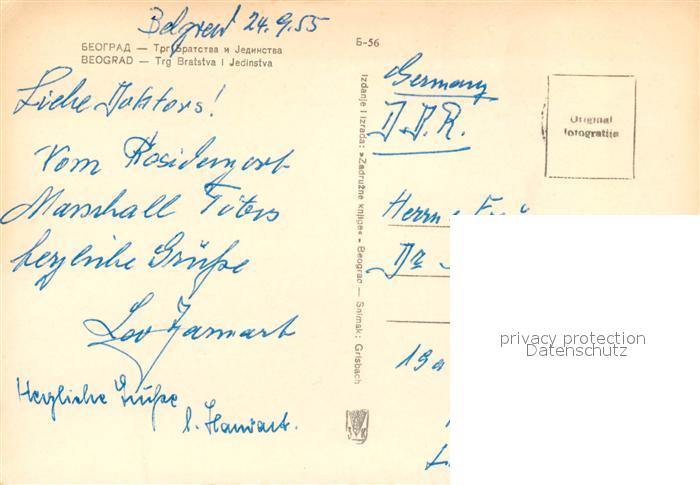 Belgrad 24.9.55
БЕОГРАД — Трг Братства и Јединства
BEOGRAD — Trg Bratstva i Jedinstva
Liebe Doktors!
Vom Residenzort
Marschall Titos
herzliche Grüße
Herzliche Grüße
Б-56
Izdanje i izrada: »Zadružne knjige« - Beograd — Snimak: Grisbach
Germany
D.D.R.
Original
fotografija
Herrn u. Fr
Dr
19a
privacy protection
Datenschutz